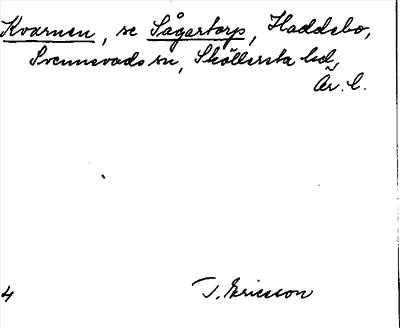 Kvarnen, se Sågartorp, Haddebo,
Svennevads sn, Sköllersta hd,
Ör. l.
4 T. Ericsson